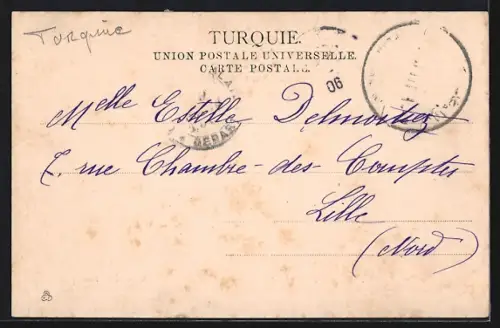 Turquie
TURQUIE.
UNION POSTALE UNIVERSELLE.
CARTE POSTALE.
06
Melle Estelle
7. rue Chambre-des-Comptes
Lille
(Nord)